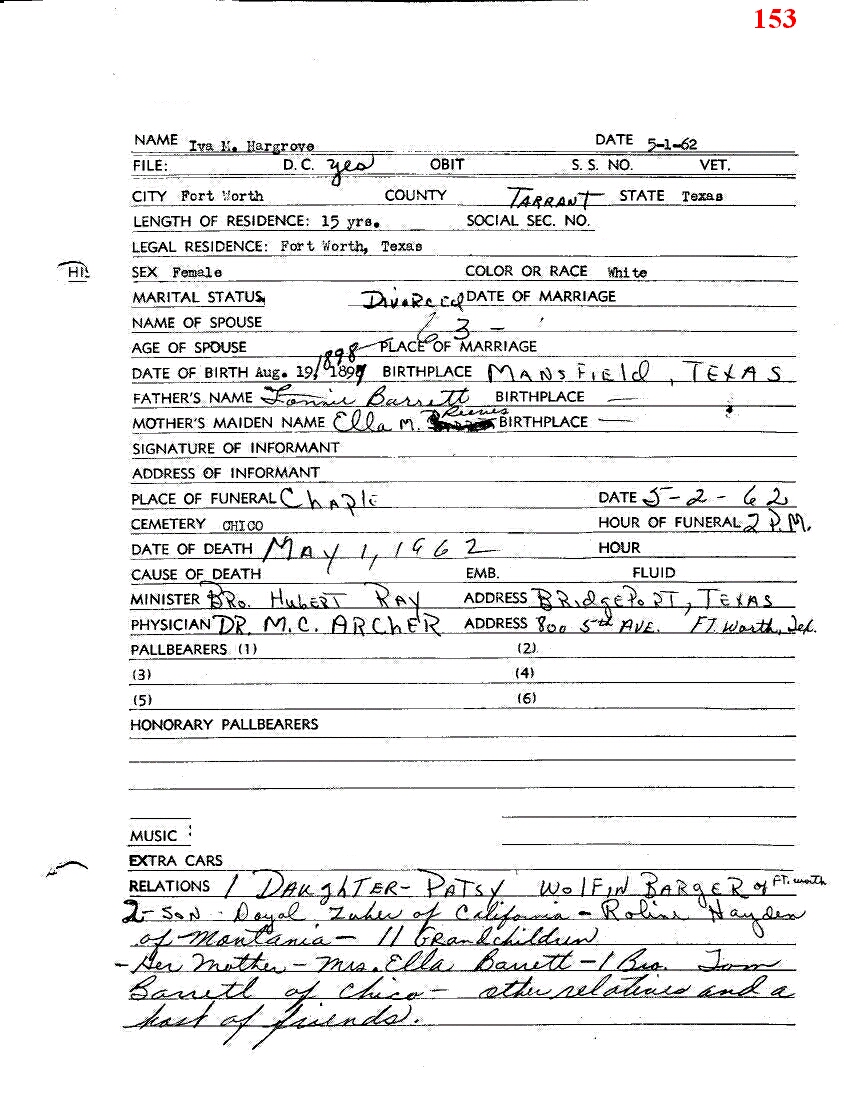 153
NAME Iva M. Hargrove DATE 5-1-62
FILE: D.C. yes OBIT S. S. NO. VET.
CITY Fort Worth COUNTY TARRANT STATE Texas
LENGTH OF RESIDENCE: 15 yrs. SOCIAL SEC. NO.
LEGAL RESIDENCE: Fort Worth, Texas
SEX Female COLOR OR RACE White
MARITAL STATUS Divorced DATE OF MARRIAGE
NAME OF SPOUSE 63 -
AGE OF SPOUSE PLACE OF MARRIAGE
DATE OF BIRTH Aug. 19, 1898 BIRTHPLACE MANSFIELD, TEXAS
FATHER'S NAME Barrett BIRTHPLACE —
MOTHER'S MAIDEN NAME Ella M. Reeves BIRTHPLACE —
SIGNATURE OF INFORMANT
ADDRESS OF INFORMANT
PLACE OF FUNERAL Chaple DATE 5-2-62
CEMETERY CHICO HOUR OF FUNERAL 2 P.M.
DATE OF DEATH MAY 1, 1962 HOUR
CAUSE OF DEATH EMB. FLUID
MINISTER BRO. HUBERT RAY ADDRESS BRIdgEPORT, TEXAS
PHYSICIAN DR. M.C. ARCHER ADDRESS 800 5th AVE. FT. Worth, Tex.
PALLBEARERS (1) (2)
(3) (4)
(5) (6)
HONORARY PALLBEARERS
MUSIC :
EXTRA CARS
RELATIONS 1 DAUGHTER- PATSY WOLFINBARGER of FT. worth
2-SON- Doyal of California - Hayden
of Montania - 11 Grandchildren
- Her Mother - Mrs. Ella Barrett - 1 Bro. Tom
Barrett of Chico - other relatives and a
host of friends.